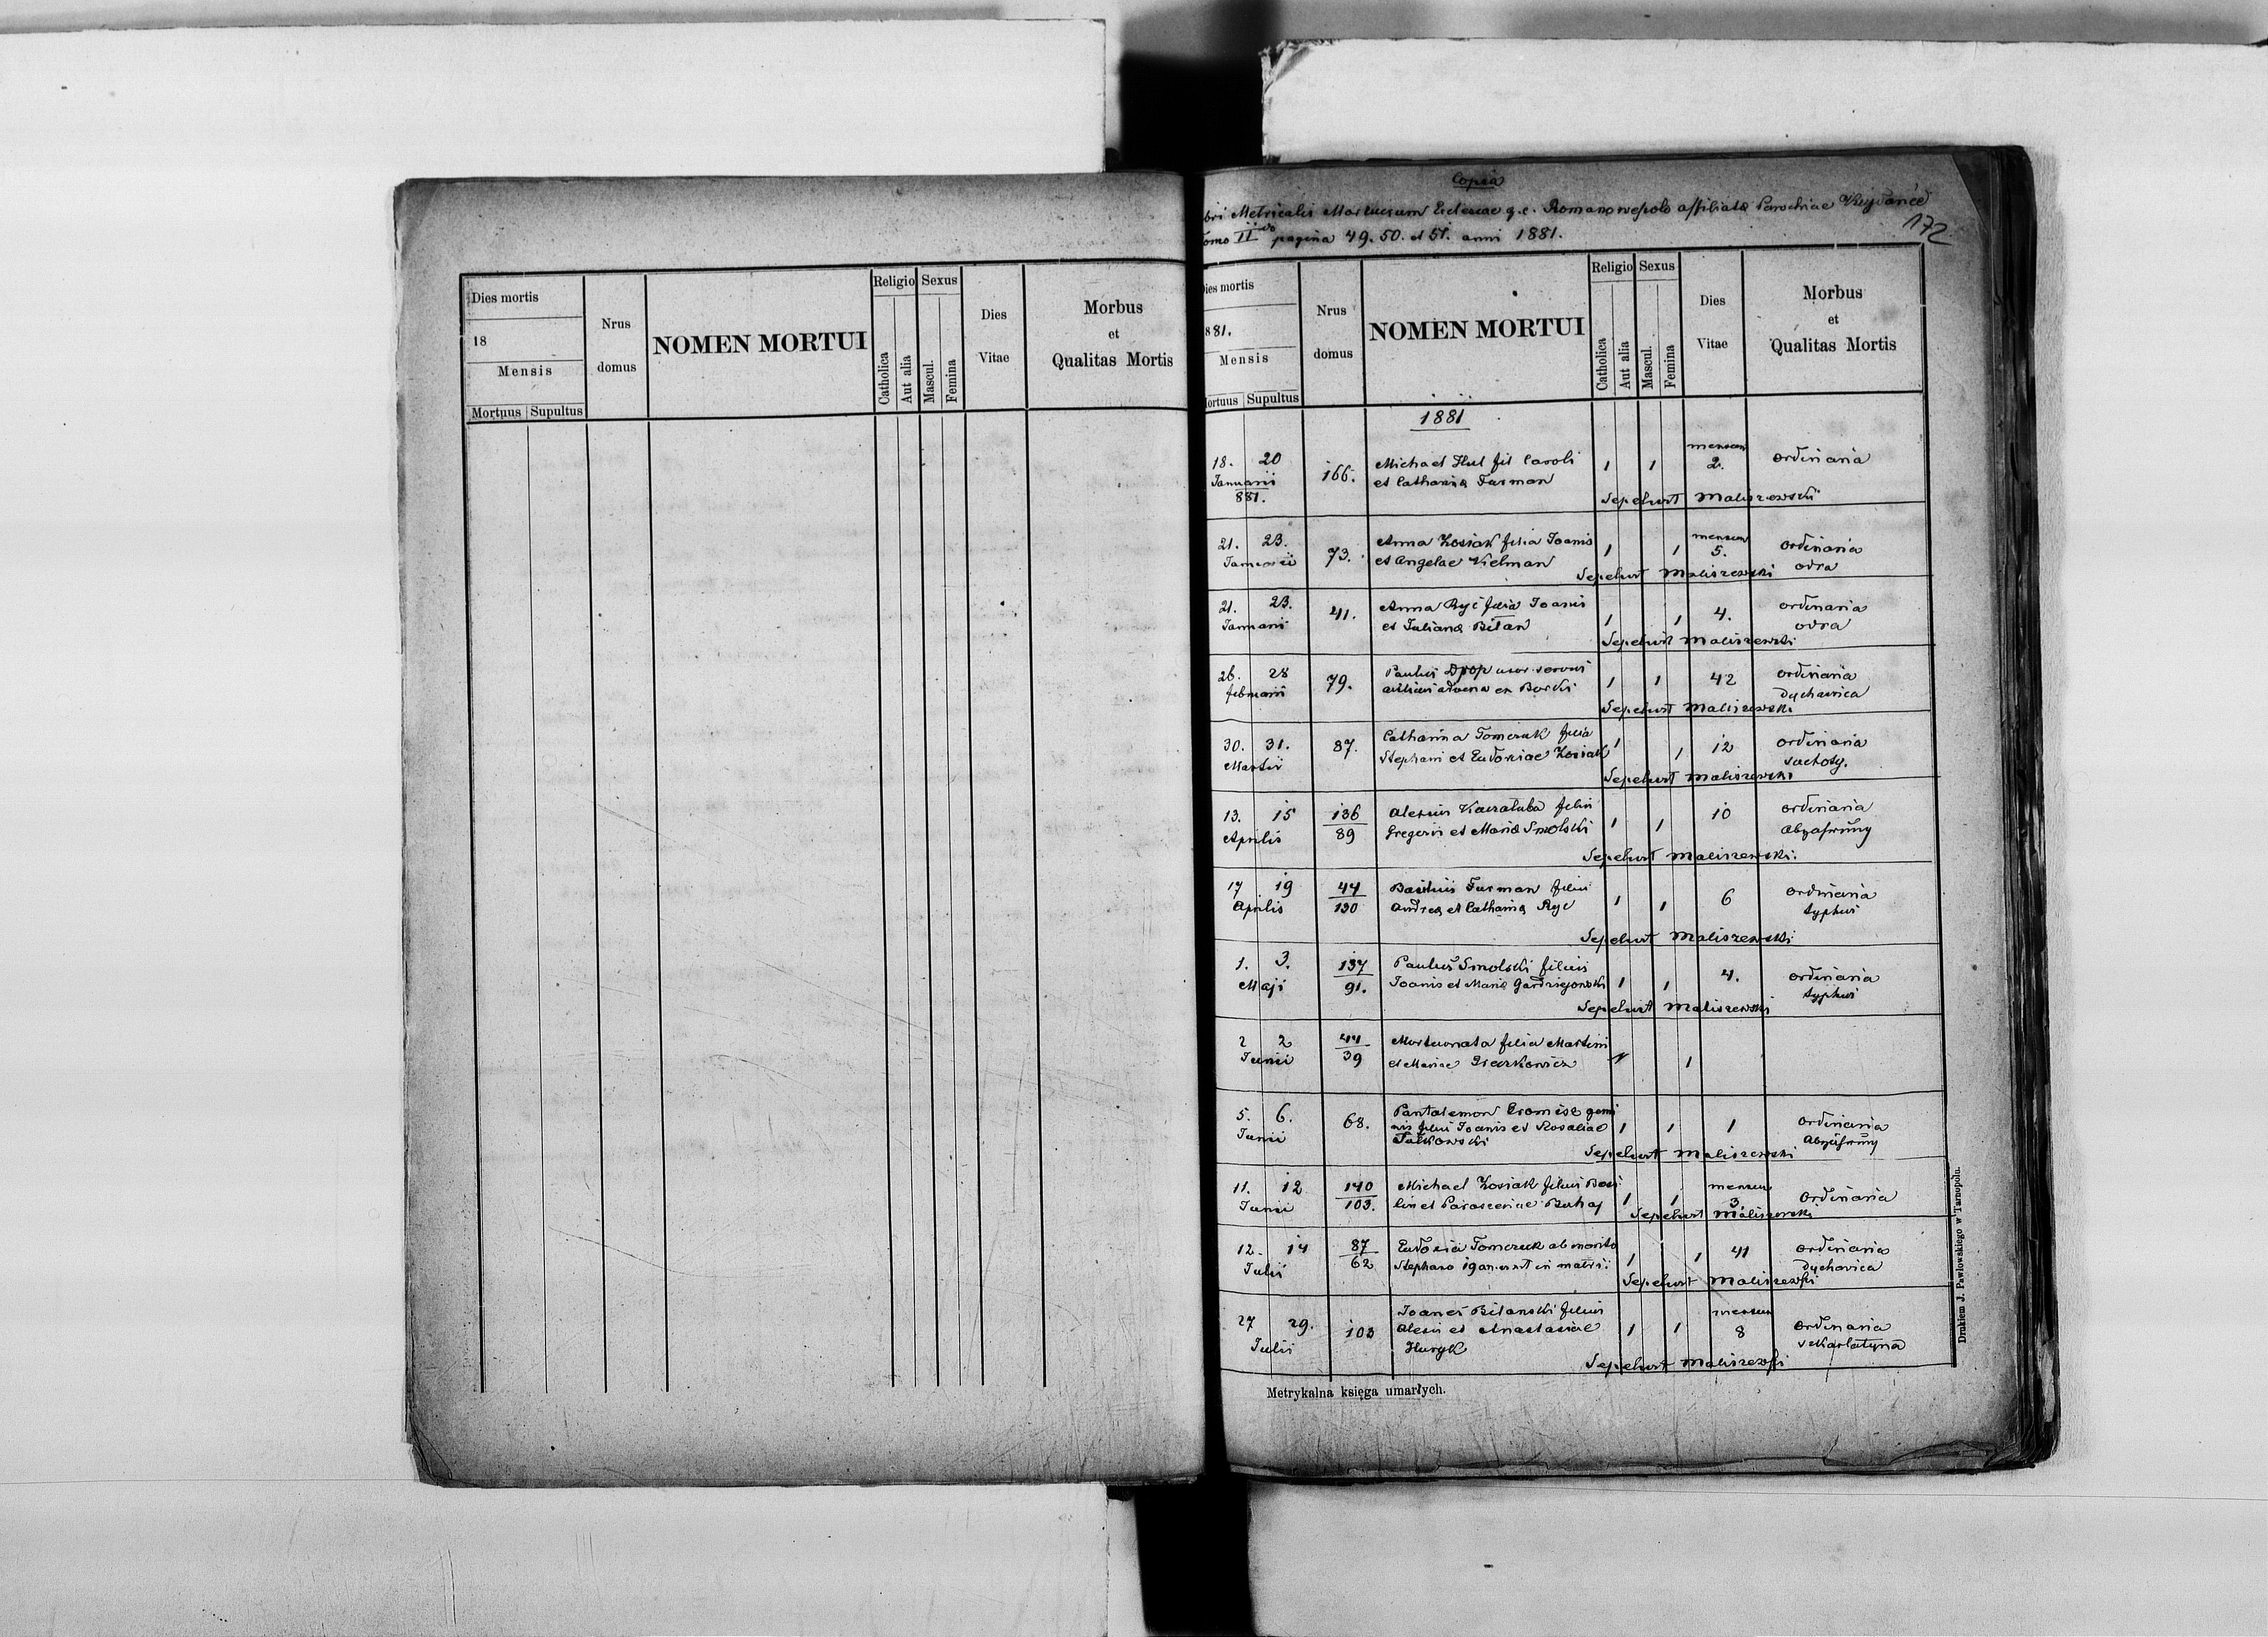 Dies mortis
18
Mensis
Mortuus Supultus
Nrus
domus
NOMEN MORTUI
Religio
Catholica
Aut alia
Sexus
Mascul.
Femina
Dies
Vitae
Morbus
et
Qualitas Mortis
Copia
bri Metricalis Mortuorum Eclesiae g. c. Romanowepole affiliatae Parochiae
omo II do pagina 49. 50. et 51. anni 1881.
172
ies mortis
881.
Mensis
ortuus Supultus
Nrus
domus
NOMEN MORTUI
Religio
Catholica
Aut alia
Sexus
Mascul.
Femina
Dies
Vitae
Morbus
et
Qualitas Mortis
1881
18. 20
Januarii
881.
166.
Michael Hul fil Caroli
et Catharinæ Furman
1 1
mensum
2.
ordinaria
Sepelivit Maliszewski
21. 23.
Januarii
73.
Anna Kosiak filia Joanis
et Angelae Kielman
1 1
mensum
5.
ordinaria
odra
Sepelivit Maliszewski
21. 23.
Januarii
41.
Anna Ryć filia Joanis
et Julianæ Bilan
1 1
4.
ordinaria
odra
Sepelivit Maliszewski
26. 28
februarii
79.
Paulus Drop servus
advena ex Borki
1 1
42
ordinaria
dychawica
Sepelivit Maliszewski
30. 31.
Martii
87.
Catharina Tomczuk filia
Stephani et Eudoxiae Kosiak
1 1
12
ordinaria
suchoty.
Sepelivit Maliszewski
13. 15
Aprilis
136
89
Alexius Kaczaluba filius
Gregorii et Mariæ Smolski
1 1
10
ordinaria
Abzehrung
Sepelivit Maliszewski.
17 19
Aprilis
44
130
Basilius Furman filius
Andreæ et Catharinæ Ryc
1 1
6
ordinaria
typhus
Sepelivit Maliszewski
1. 3.
Maji
137
91.
Paulus Smolski filius
Joanis et Mariæ Gardziejowski
1 1
4.
ordinaria
typhus
Sepelivit Maliszewski
2 2
Junii
44
39
Mortuonata filia Martini
et Mariae
1 1
5. 6.
Junii
68.
Pantalemon gemi
nis filius Joanis et Rosaliae
Falkowski
1 1
1
ordinaria
Abzehrung
Sepelivit Maliszewski
11. 12
Junii
140
103.
Michael Kosiak filius Basi
lii et Parasceviae Buhaj
1 1
mensum
3.
ordinaria
Sepelivit Maliszewski
12. 14
Julii
87
62
Eudoxia Tomczuk ab marito
Stephano 19 an. vixit in matri:
1 1
41
ordinaria
dychavica
Sepelivit Maliszewski
27 29.
Julii
103
Joanes Bilanski filius
Alexii et Anastasiae
Huryk
1 1
mensum
8
ordinaria
szkarlatyna
Sepelivit Maliszewski
Metrykalna księga umarłych.
Drukiem J. Pawłowskiego w Tarnopolu.